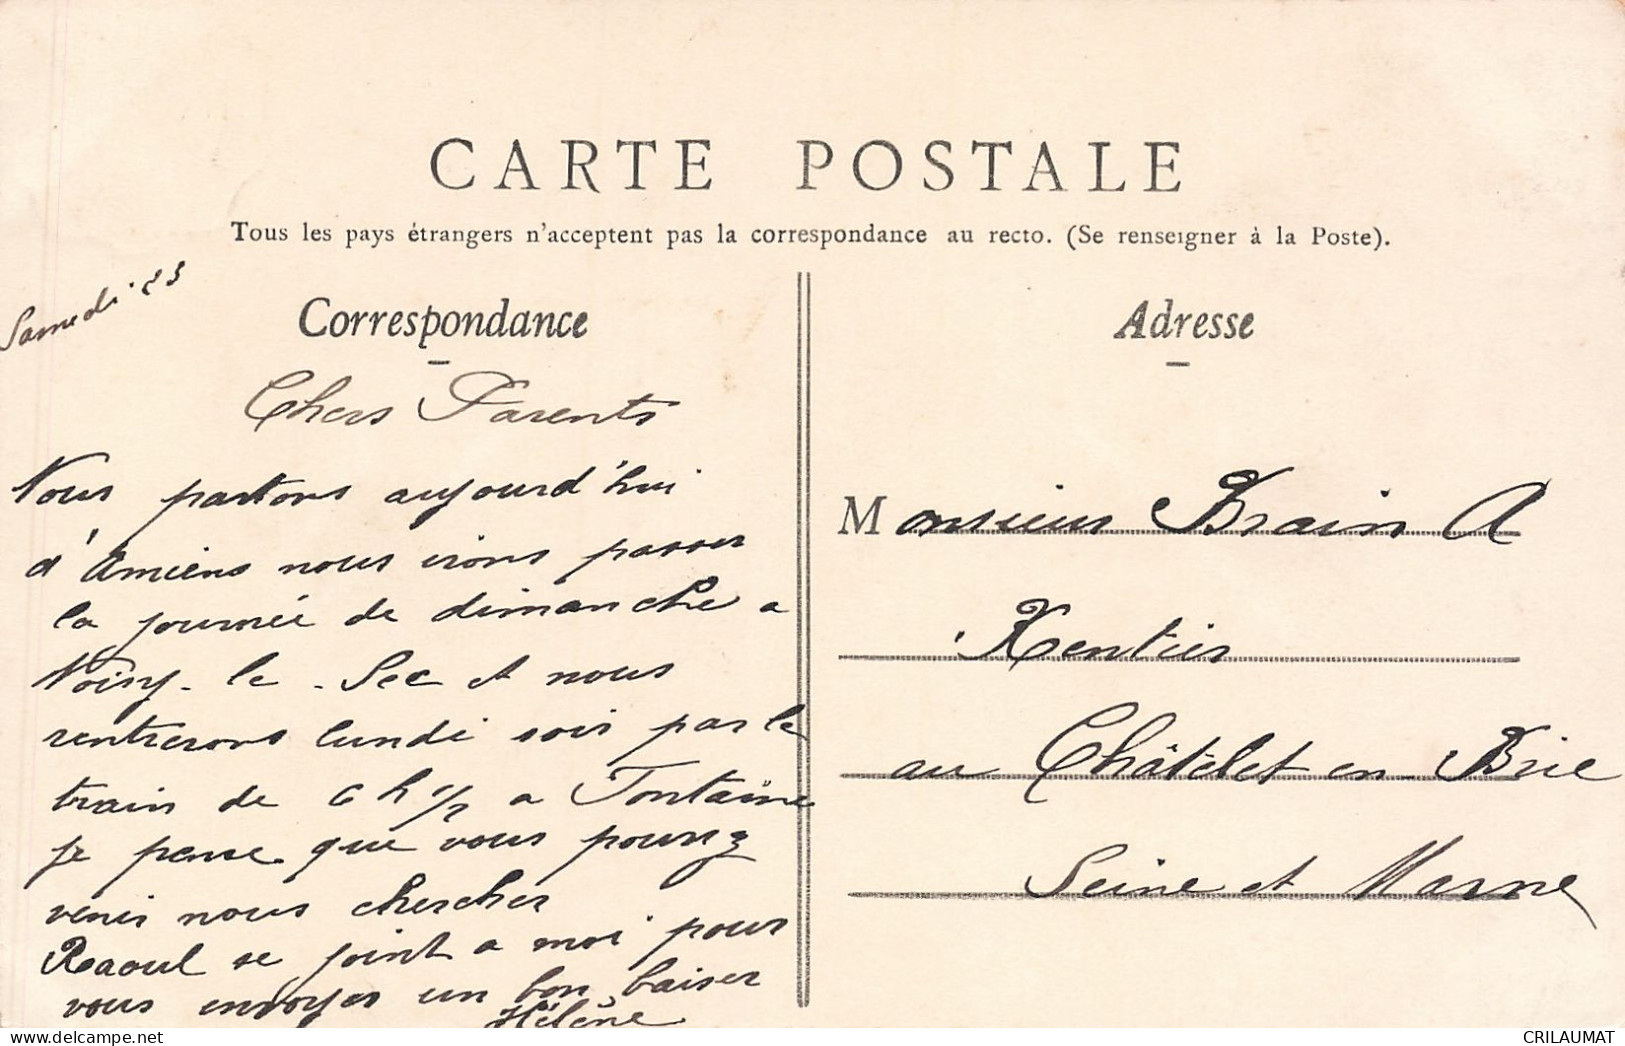 CARTE POSTALE
Tous les pays étrangers n'acceptent pas la correspondance au recto. (Se renseigner à la Poste).
Samedi 23
Correspondance
Chers Parents
Nous partons aujourd'hui
d'Amiens nous irons passer
la journée de dimanche a
Noisy-le-Sec et nous
rentrerons lundi soir par le
train de 6 h 1/2 a Fontaine
je pense que vous pourrez
venir nous chercher
Raoul se joint a moi pour
vous envoyer un bon baiser
Hélène
Adresse
Monsieur Brain A
Rentier
au Châtelet en Brie
Seine et Marne
CRILAUMAT